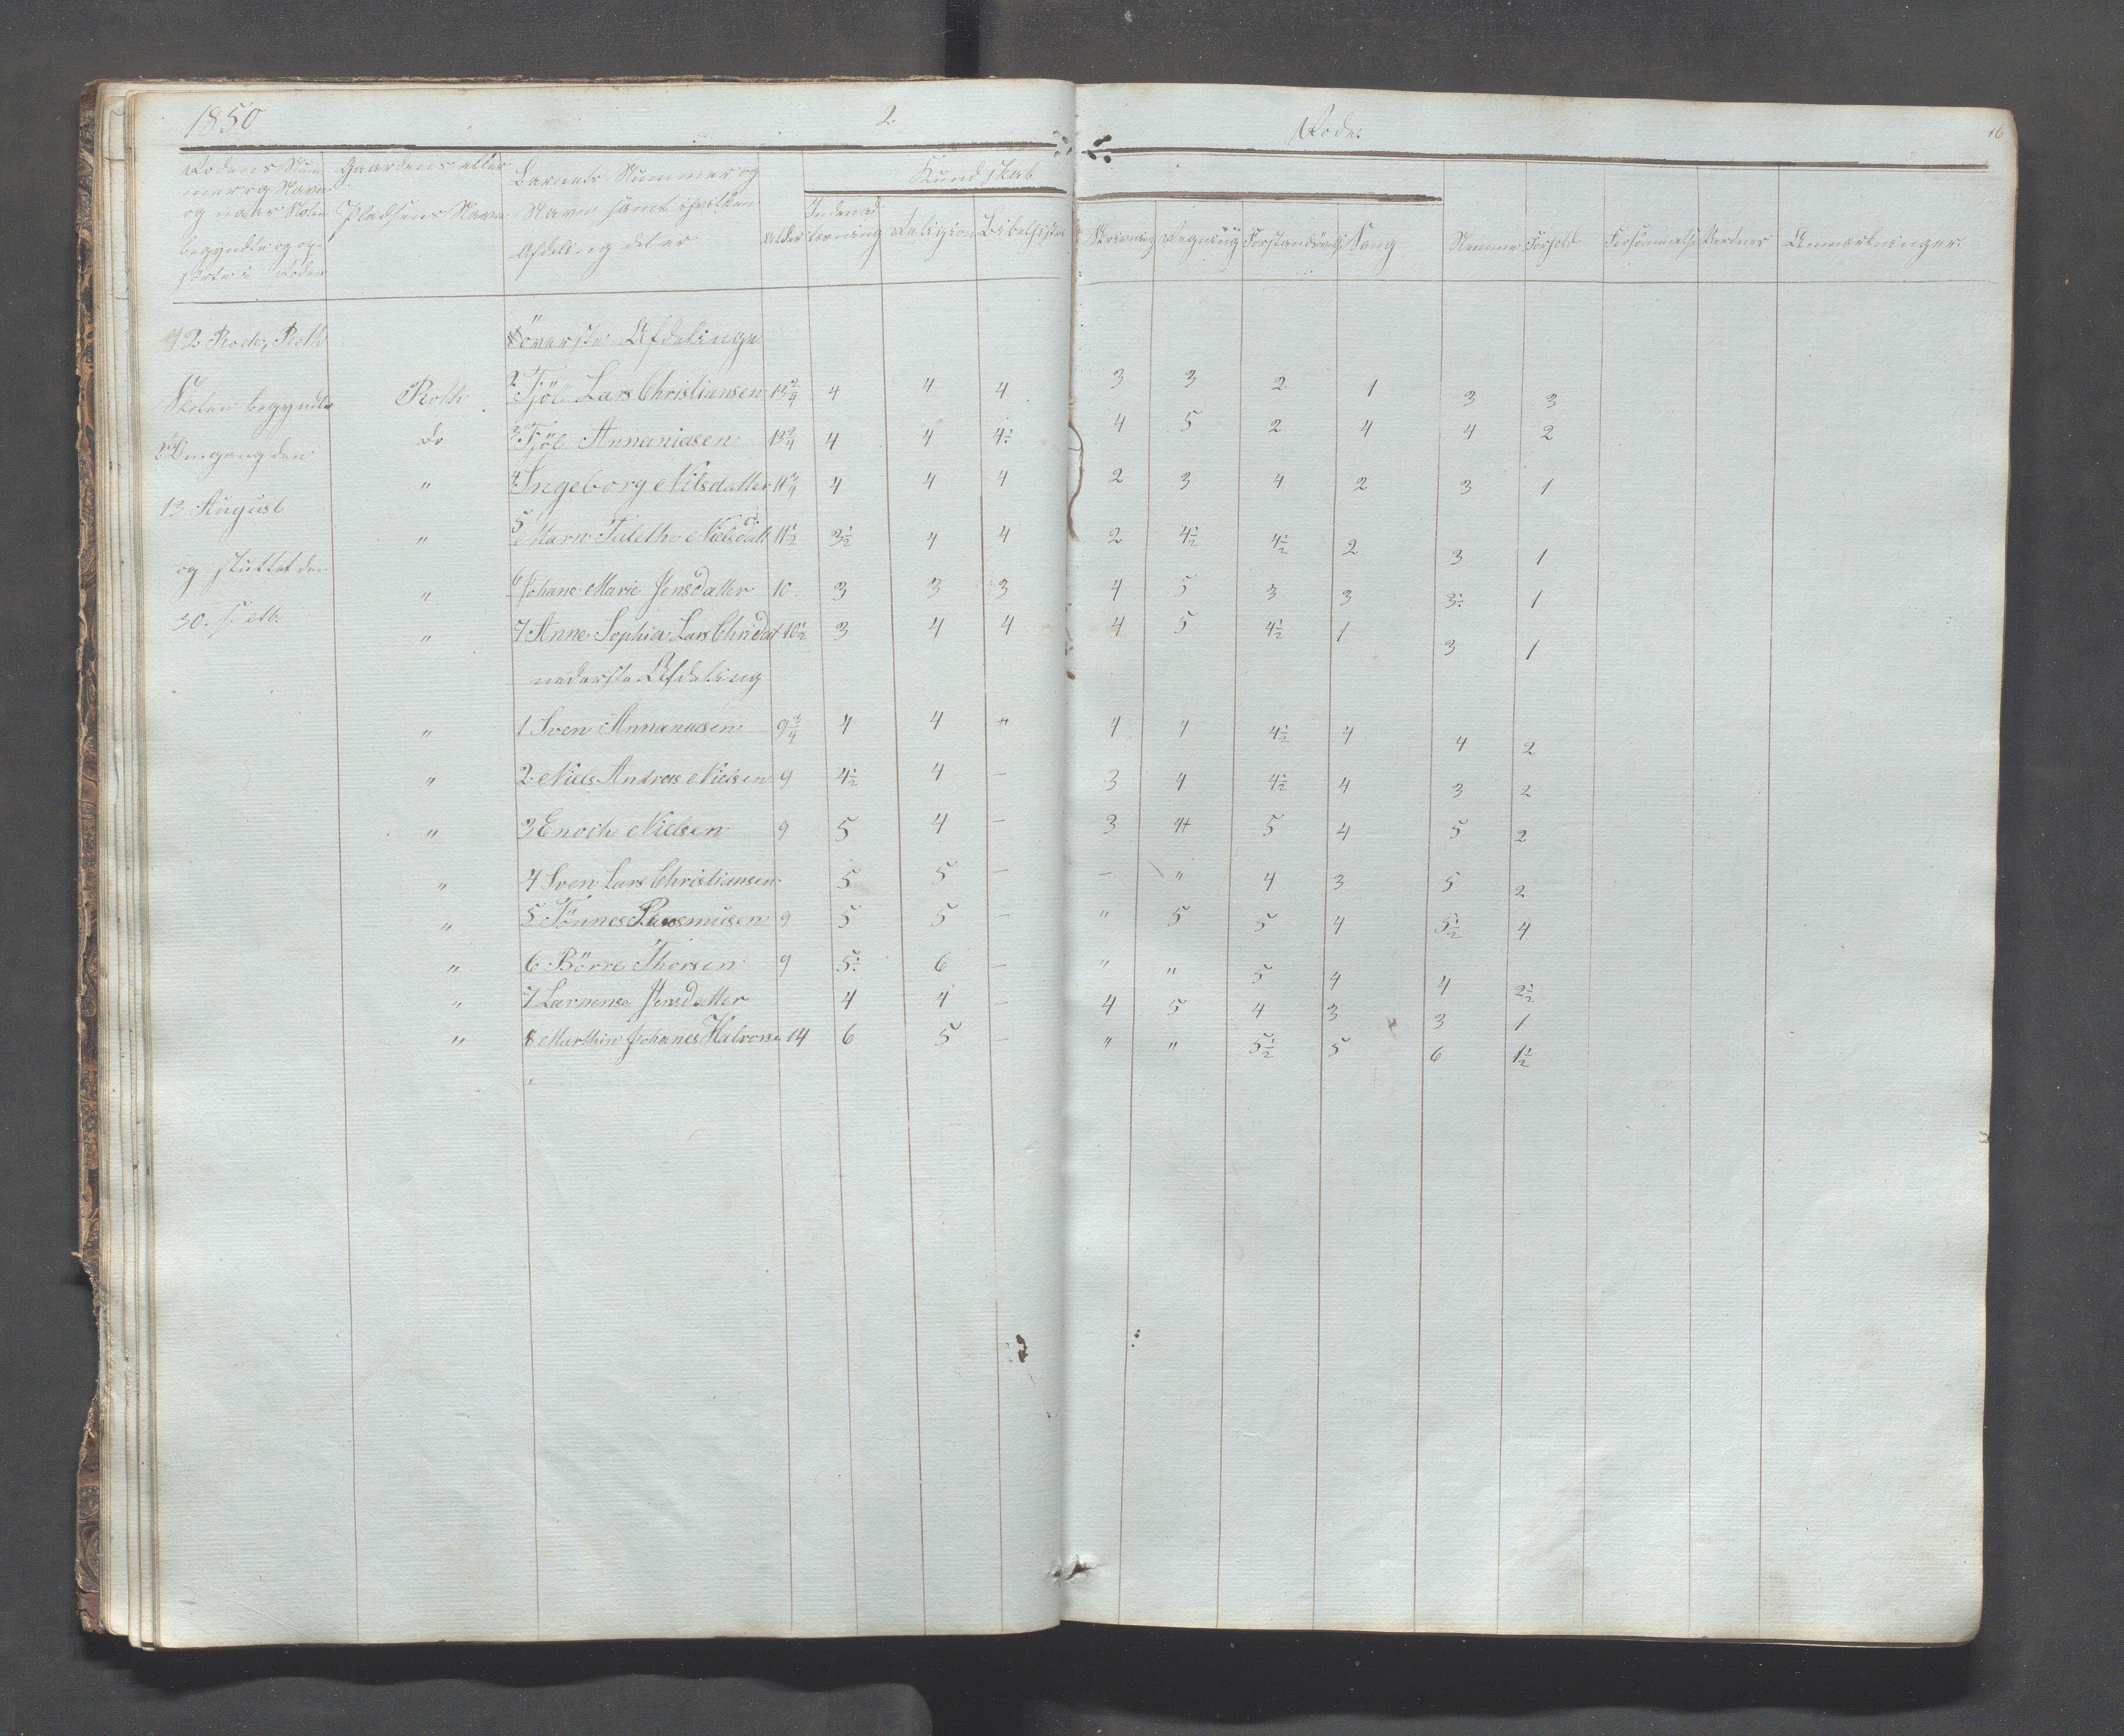 1850 2. Rode: 16
Rodens Num- Gaardens eller Barnets Nummer og Kundskab
mer og Navn Pladsens Navn Navn samt i hvilken
og naar Skolen Afdeling det er
begyndte og op- Alder Indenad Religion Bibelhistor Skrivning Regning Forstandsövels Sang Nemme Forhold Forsömmelse Anmærkninger
hörte i Roden læsning
2 Rode, Roth överste Afdelinge
Skolen begyndte Roth 2 Tjöl Lars Christiansen 13 3/4 4 4 4 3 3 2 1 3 3
Do 3 Tjöl Annaniasen 13 3/4 4 4 4÷ 4 5 2 4 4 2
2 Omgang den
" 4 Ingeborg Nilsdatter 11 3/4 4 4 4 2 3 4 2 3 1
13 August
" 5 Maren Taleth Nielsdatt 11 1/2 3 1/2 4 4 2 4 1/2 4 1/2 2 3 1
og sluttet den
" 6 Johane Marie Jensdatter 10 3 3 3 4 5 3 3 3÷ 1
30.
" 7 Anne Sophia Lars Chri dat 10 1/2 3 4 4 4 5 4 1/2 1 3 1
nederste Afdeling
" 1 Sven Annaniasen 9 3/4 4 4 " 4 4 4 1/2 4 4 2
" 2 Niels Andreas Nielsen 9 4 1/2 4 — 3 4 4 1/2 4 3 2
" 3 Enoch Nielsen 9 5 4 — 3 4+ 5 4 5 2
" 4 Sven Lars Christiansen 5 5 — — " 4 3 5 2
" 5 Tönnes Rasmusen 9 5 5 — " 5 5 4 5 1/2 4
" 6 Börre Thorsen 9 5÷ 6 — " " 5 4 4 2 1/2
" 7 Larnense Jensdatter 4 4 — 4 5 4 3 3 1
" 8 Marthin Johanes Halvorse 14 6 5 — " " 5 1/2 5 6 1 1/2